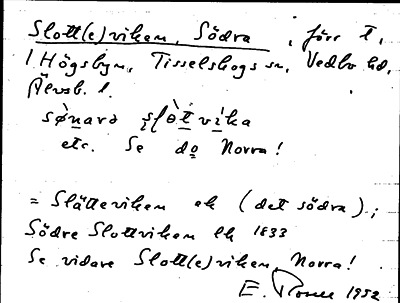 Slott(e)viken, Södra, förr t.
l Högsbyn, Tisselskogs sn, Vedbo hd,
Älvsb. l.
sønarə slòtvika
etc. Se do Norra!
= Slätteviken ek (det södra);
Södre Slottviken Ek 1833
Se vidare Slott(e)viken, Norra!
E. 1952